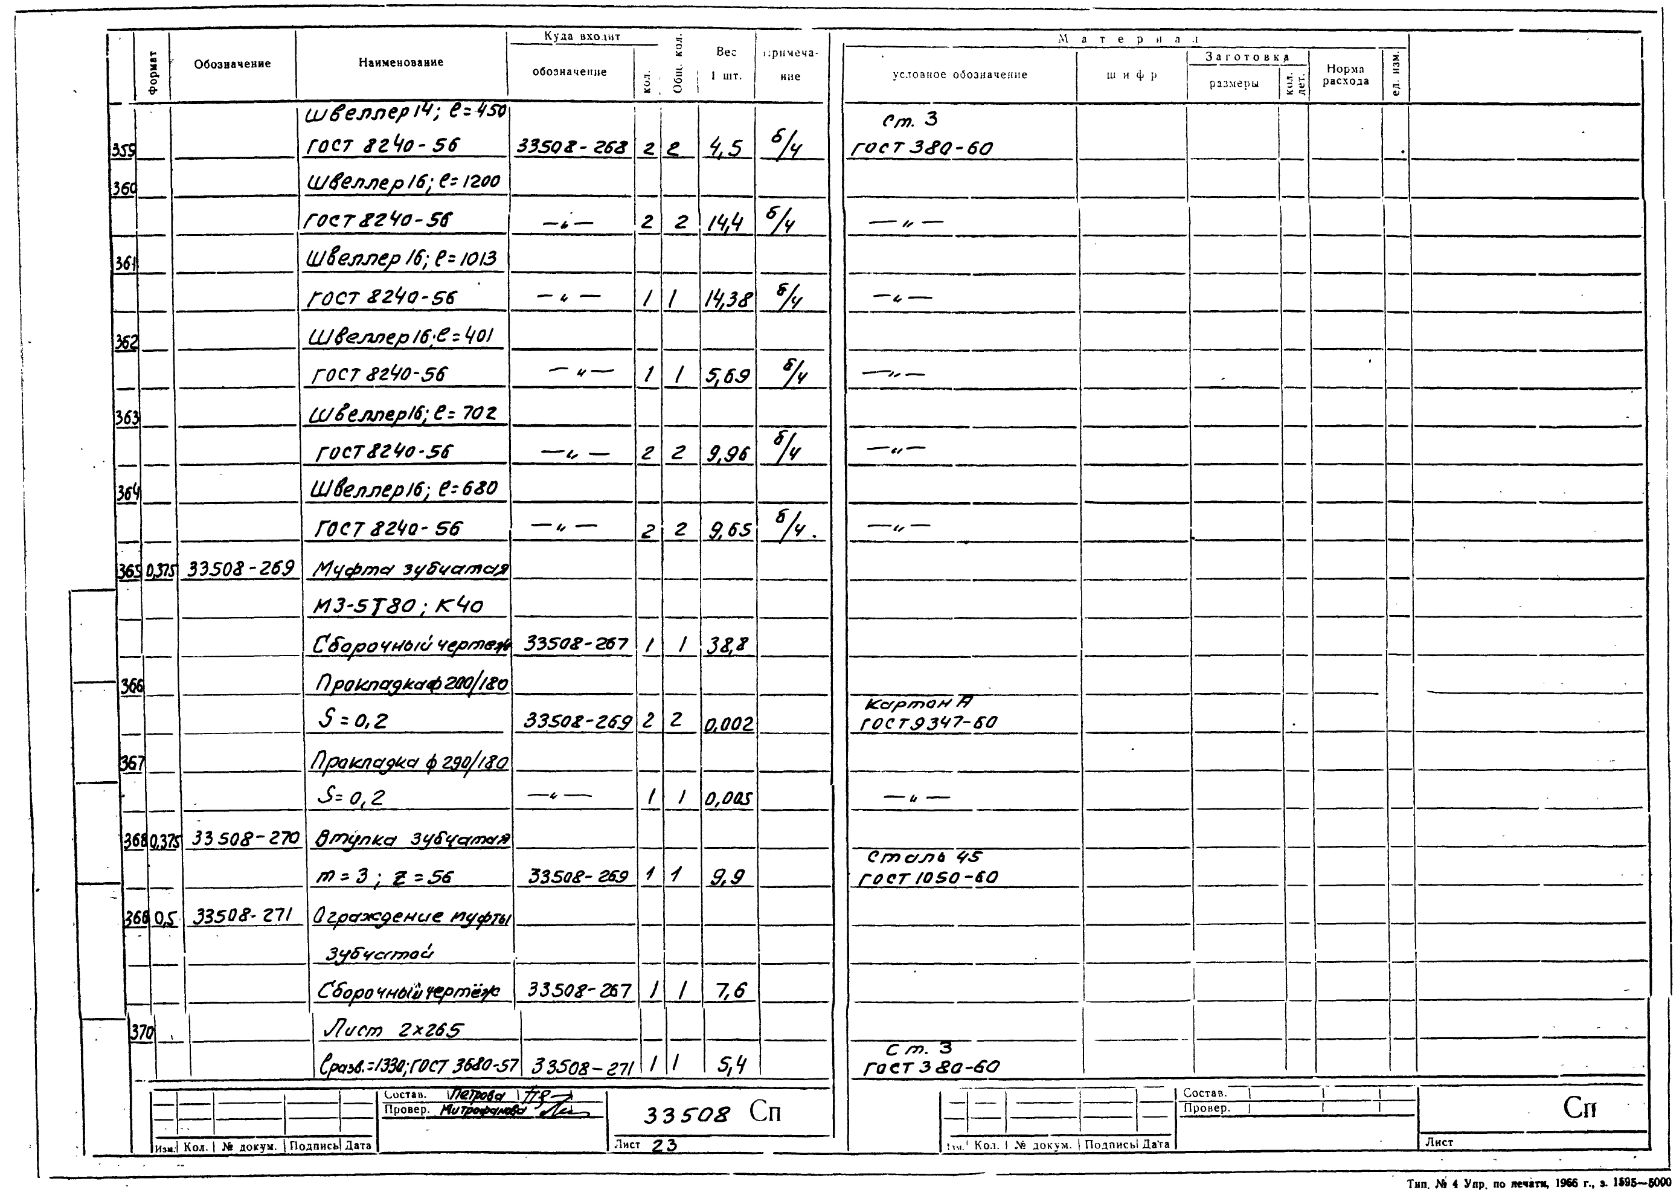 Куда входит
М а т е р и а л
Формат Обозначение Наименование обозначение кол. Общ. кол. Вес 1 шт. Примеча-ние условное обозначение шифр Заготовка размеры кол. дет. Норма расхода ед. изм.
Швеллер 14; ℓ=450 Ст. 3
359 ГОСТ 8240-56 33508-268 2 2 4,5 б/ч ГОСТ 380-60
360 Швеллер 16; ℓ=1200
ГОСТ 8240-56 —„— 2 2 14,4 б/ч —„—
361 Швеллер 16; ℓ=1013
ГОСТ 8240-56 —„— 1 1 14,38 б/ч —„—
362 Швеллер 16; ℓ=401
ГОСТ 8240-56 —„— 1 1 5,69 б/ч —„—
363 Швеллер 16; ℓ=702
ГОСТ 8240-56 —„— 2 2 9,96 б/ч —„—
364 Швеллер 16; ℓ=680
ГОСТ 8240-56 —„— 2 2 9,65 б/ч. —„—
365 0,375 33508-269 Муфта зубчатая
МЗ-5Т80; К40
Сборочный чертеж 33508-267 1 1 38,8
366 Прокладка ф 200/180 Картон А
S=0,2 33508-269 2 2 0,002 ГОСТ 9347-60
367 Прокладка ф 290/180
S=0,2 —„— 1 1 0,005 —„—
368 0,375 33508-270 Втулка зубчатая Сталь 45
m=3; z=56 33508-269 1 1 9,9 ГОСТ 1050-60
366 0,5 33508-271 Ограждение муфты
зубчатой
Сборочный чертёж 33508-267 1 1 7,6
370 Лист 2×265 Ст. 3
ℓразв.=1330; ГОСТ 3680-57 33508-271 1 1 5,4 ГОСТ 380-60
Состав. Петрова Состав.
Провер. Митрофанова 33508 Сп Провер. Сп
Изм. Кол. № докум. Подпись Дата Лист 23 Изм. Кол. № докум. Подпись Дата Лист
Тип. № 4 Упр. по печати, 1966 г., з. 1595—5000